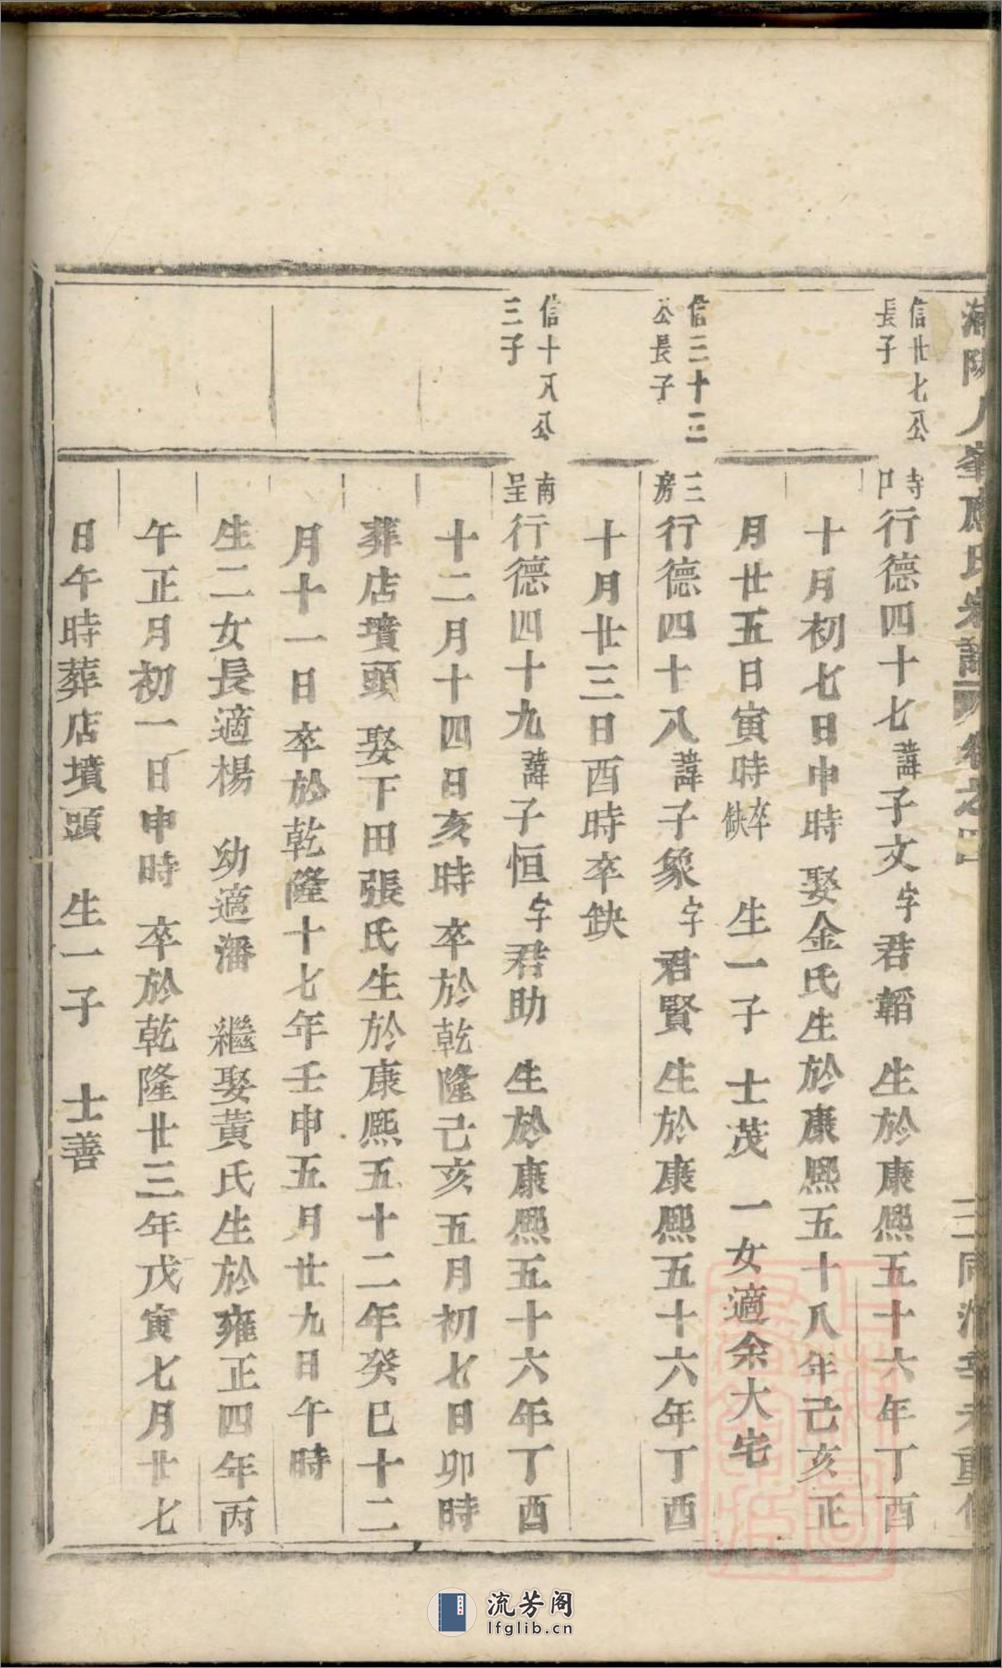 信廿七公
長子
寺口行德四十七諱子文字君韜 生於康熙五十六年丁酉
十月初七日申時 娶金氏生於康熙五十八年己亥正
月廿五日寅時卒缺 生一子 士茂 一女適余大宅
信三十三
公長子
三房行德四十八諱子象字君賢 生於康熙五十六年丁酉
十月廿三日酉時卒缺
信十八公
三子
南呈行德四十九諱子恒字君助 生於康熙五十六年丁酉
十二月十四日亥時 卒於乾隆己亥五月初七日卯時
葬店墳頭 娶下田張氏生於康熙五十二年癸巳十二
月十一日 卒於乾隆十七年壬申五月廿九日午時
生二女長適楊 幼適潘 繼娶黃氏生於雍正四年丙
午正月初一日申時 卒於乾隆廿三年戊寅七月廿七
日午時葬店墳頭 生一子 士善
流芳阁
lfglib.cn